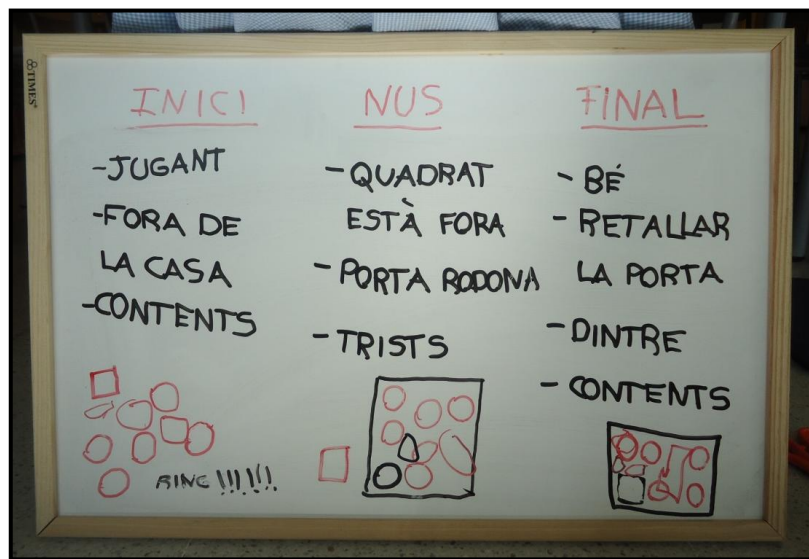 TIMES
INICI
-JUGANT
-FORA DE
LA CASA
-CONTENTS
RING!!!!!!
NUS
-QUADRAT
ESTÀ FORA
-PORTA RODONA
-TRISTS
FINAL
-BÉ
-RETALLAR
LA PORTA
-DINTRE
-CONTENTS